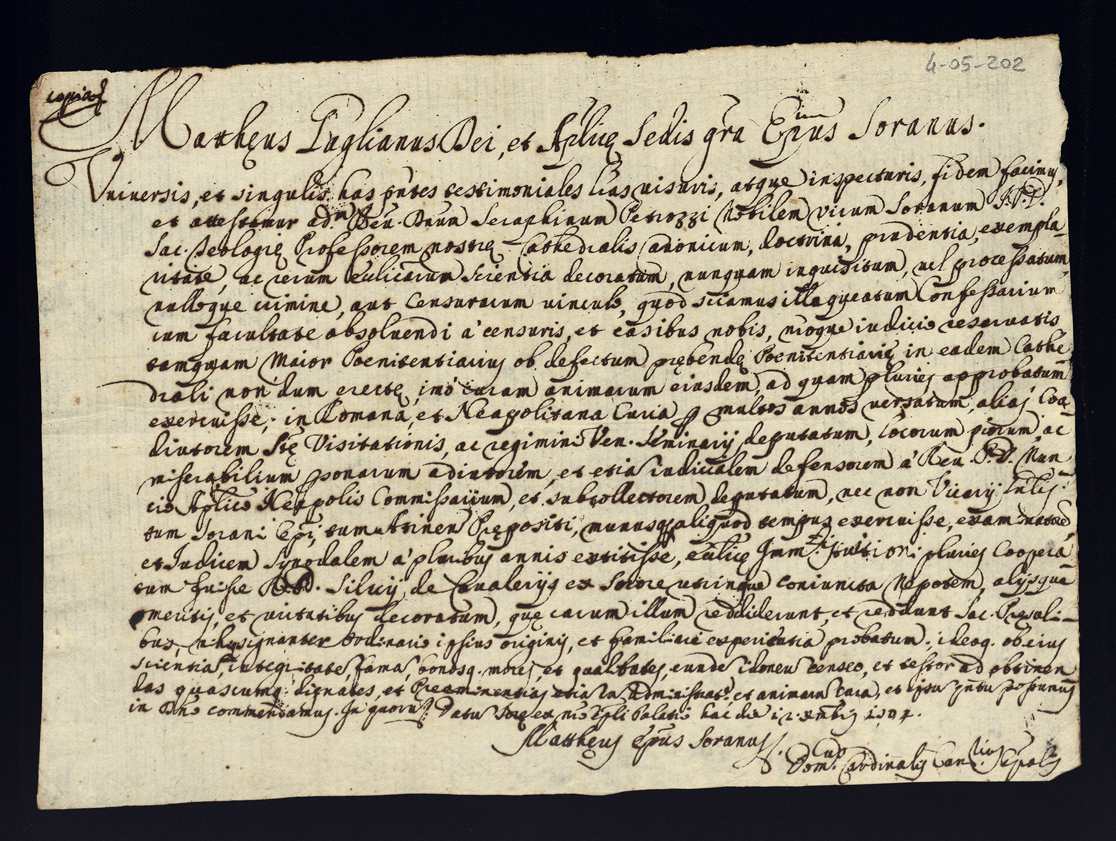 4-05-202
copia
Mattheus Paglianus Dei, et Aplicę Sedis gra Epus Soranus.
Vniversis, et singulis has pntes testimoniales lras visuris, atque inspecturis, fidem facimus,
et attestamur adm Reu. Dnum Seraphinum Petrozzi Nobilem virum Soranum
Sac. Teologię Professorem nostrę Cathedralis Canonicum, doctrina, prudentia, exempla-
ritate, ac rerum eulicarum scientia decoratum, nunquam inquisitum, vel processatum,
nulloque crimine, aut Censurarum vinculo, quod sciamus illaqueatum Confessarium
cum facultate absoluendi à censuris, et casibus nobis, nroque iudicio reservatis
tamquam Maior Poenitentiarius ob defectum prębendę Poenitentiarię in eadem Cathe-
drali non dum erectę, imò curam animarum eiusdem, ad quam pluries approbatum
exercuisse, in Romana, et Neapolitana Curia p multos annos versatum, alias Coa-
diutorem Stę Visitationis, ac regiminis Ven. Seminarij deputatum, locorum piorum, ac
miserabilium psonarum adiutorem, et etiā iudicialem defensorem à Reu. P.D. Nun-
cio Aplico Neapolis Commissarium, et subcollectorem deputatum, nec non Vicarij
tum Sorani Epi, tum Atinen Prępositi, munusq aliquod tempus exercuisse, exam
et Iudicem Synodalem à pluribus annis extitisse, pluries Coopera-
tum fuisse Silvij de Caualerijs ex Sorore utrinque coniuncta Nepotem, alijsque
meritis, et virtutibus decoratum, quę carum illum reddiderunt, et reddunt Sac. Pręsuli-
bus, Ordinario ipsius originis, et familiari experientia probatum: ideoq. ob eius
scientiā, integritatē, famā, bonosq. mores, et qualitates, eundē idoneū censeo, et testor ad obtinen-
das quascumq. dignates, et Preeminentias etiā in et animarū cura, et
in Dno commendamus. In quorū Datū Sorę ex nro Epli Palatio hac die
Mattheus Epus Soranus
Cardinalis